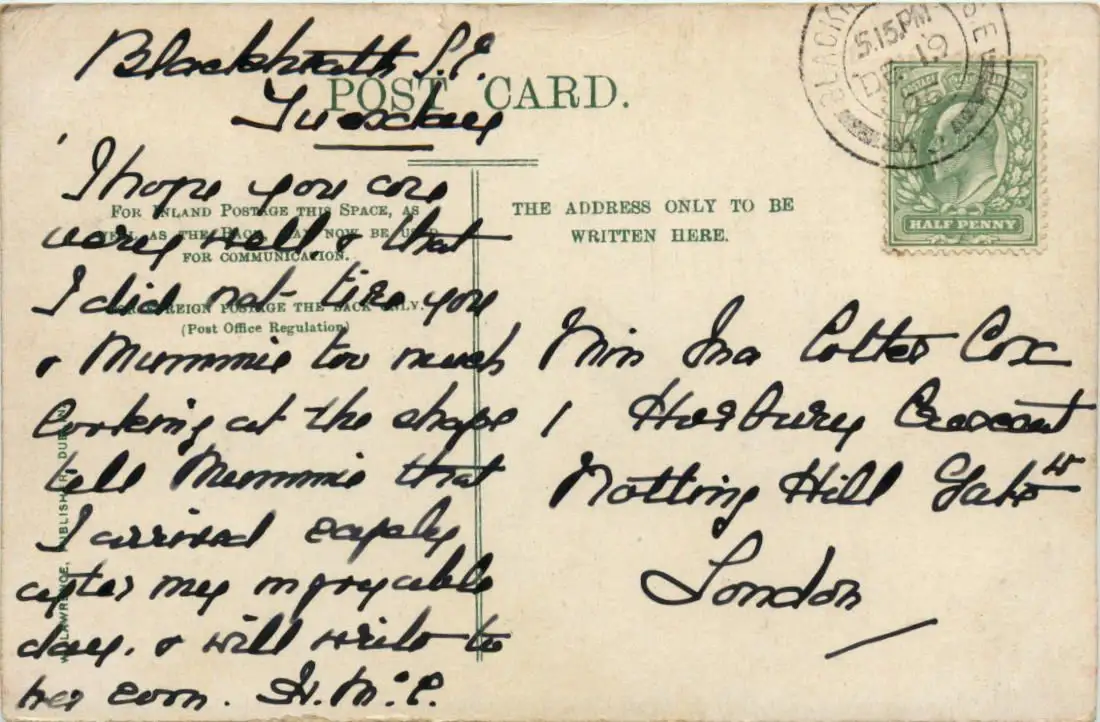 Blackheath S.E.
Tuesday
POST CARD.
I hope you are
very well & that
I did not tire you
& Mummie too much
looking at the shops
tell Mummie that
I arrived safely
after my agreeable
day. & will write to
her soon. H. McC.
FOR INLAND POSTAGE THIS SPACE, AS
WELL AS THE BACK, MAY NOW BE USED
FOR COMMUNICATION.
FOR FOREIGN POSTAGE THE BACK ONLY.
(Post Office Regulation)
THE ADDRESS ONLY TO BE
WRITTEN HERE.
Miss Ina Cotter Cox
1 Horbury Crescent
Notting Hill Gate W
London
LAWRENCE, PUBLISHER, DUBLIN
5.15.PM
DE 19
HALF PENNY